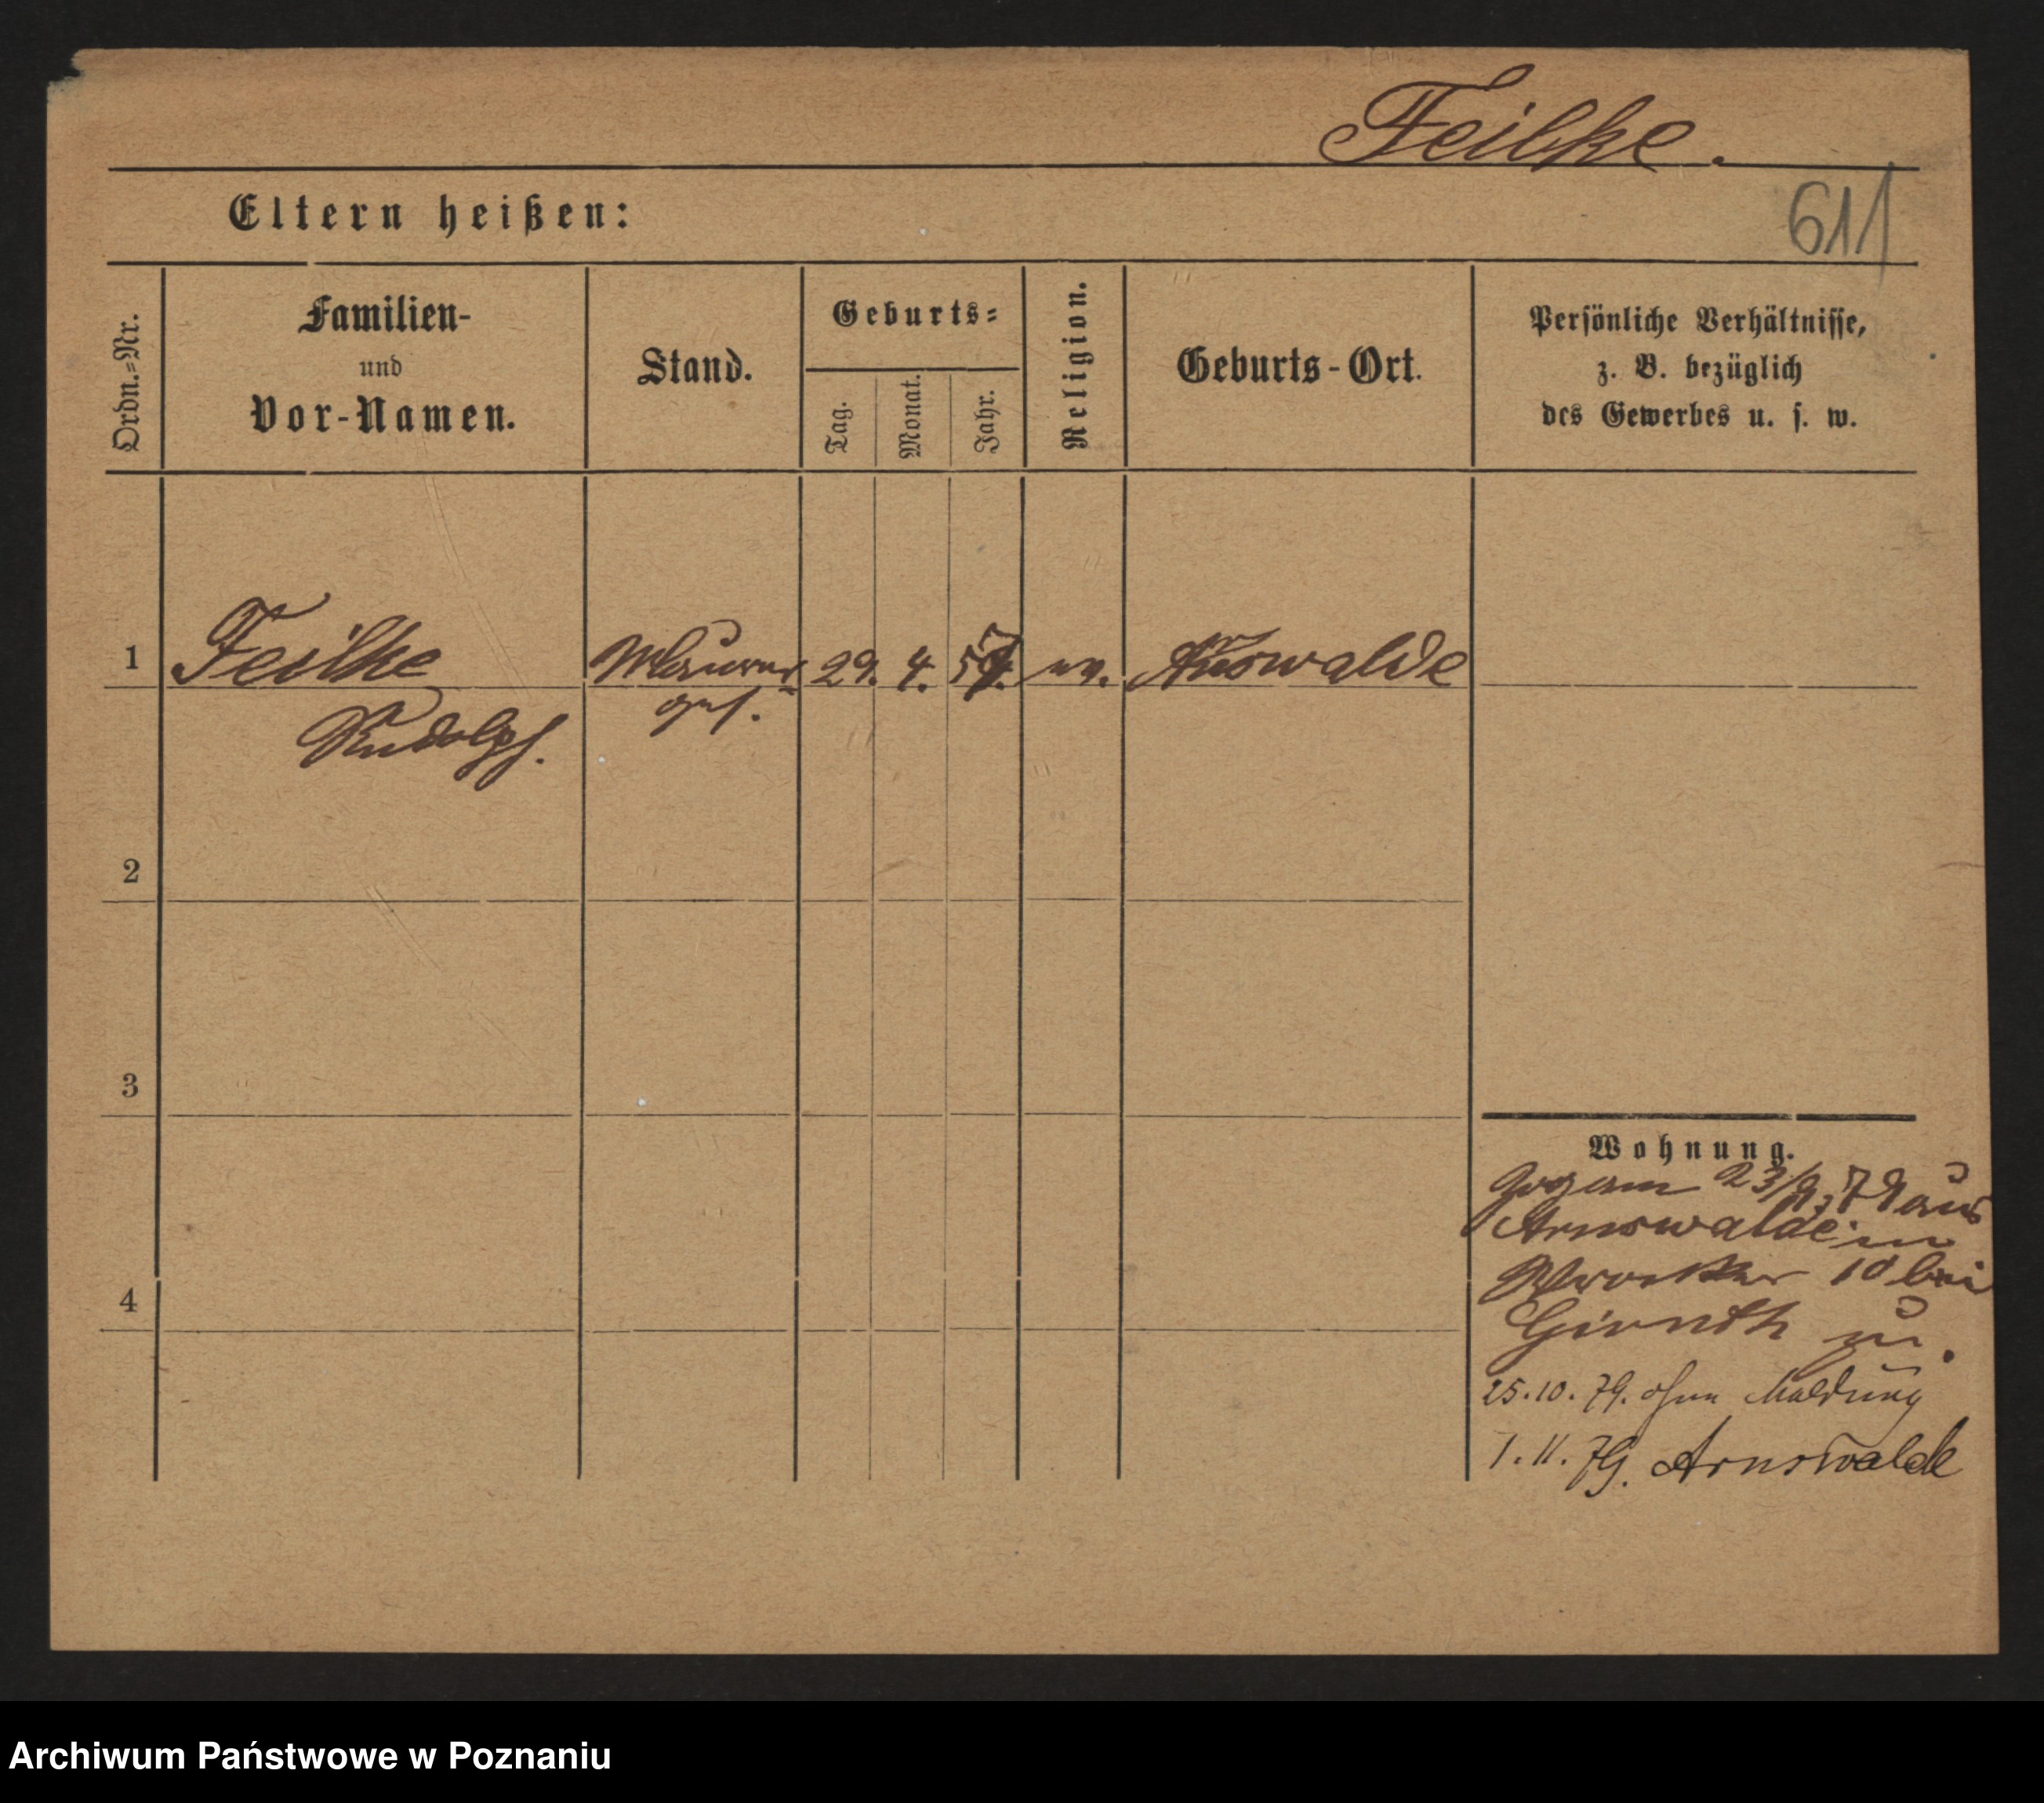 Feilke.
611
Eltern heißen:
Ordn.=Nr.
Familien-
und
Vor-Namen.
Stand.
Geburts=
Tag.
Monat.
Jahr.
Religion.
Geburts-Ort.
Persönliche Verhältnisse,
z. B. bezüglich
des Gewerbes u. s. w.
1 Feilke Maurer 29. 4. ev. Arnswalde
Rudolph. ges.
2
3
4
Wohnung.
Zog am 23/9. 79 aus
Arnswalde in
10 bei
Girndth zu.
25.10.79. ohne Meldung
1.11.79. Arnswalde
Archiwum Państwowe w Poznaniu